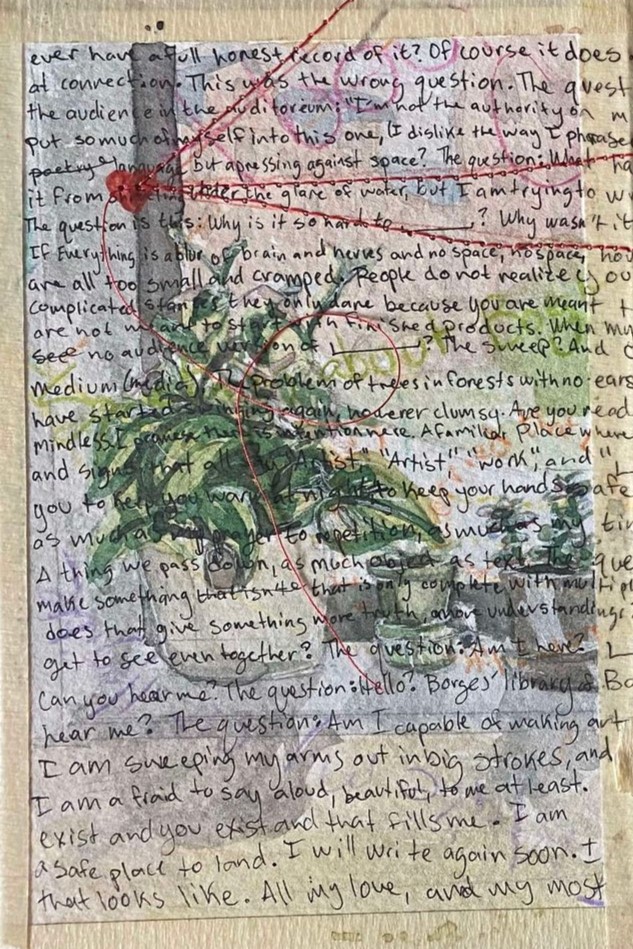 ever have a full honest record of it? Of course it does
at connection. This was the wrong question. The quest
the audience in the auditoreum: "I'm not the authority on m
put so much of myself into this one, (I dislike the way I phrase
poetry language but apressing against space? The question: What ha
it from under the glare of water, but I am trying to w
The question is this: Why is it so hard to ______? Why wasn't it
If Everything is a blur of brain and nerves and no space, no space, how
are all too small and cramped. People do not realize you
complicated stanzes they only dane because you are meant t
are not meant to start with finished products. When my
see no audience version of ______? The sweep? And
medium (media). The problem of trees in forests with no ears
have started swinging again, however clumsy. Are you read
mindless. I promise there is intention here. A familiar Place where
and signs that all "Artist," "Artist" "work", and "
you to keep you warm at night to keep your hands safe
as much a prayer to repetition, as much as my tin
A thing we pass down, as much object as text. The que
make something that isn't that is only complete with multipl
does that give something more truth, more understanding.
get to see even together? The question: Am I here?
Can you hear me? The question: Hello? Borges' library of Ba
hear me? The question: Am I capable of making art
I am sweeping my arms out in big strokes, and
I am a fraid to say aloud, beautiful, to me at least.
exist and you exist and that fills me. I am
a safe place to land. I will write again soon. I
that looks like. All my love, and my most